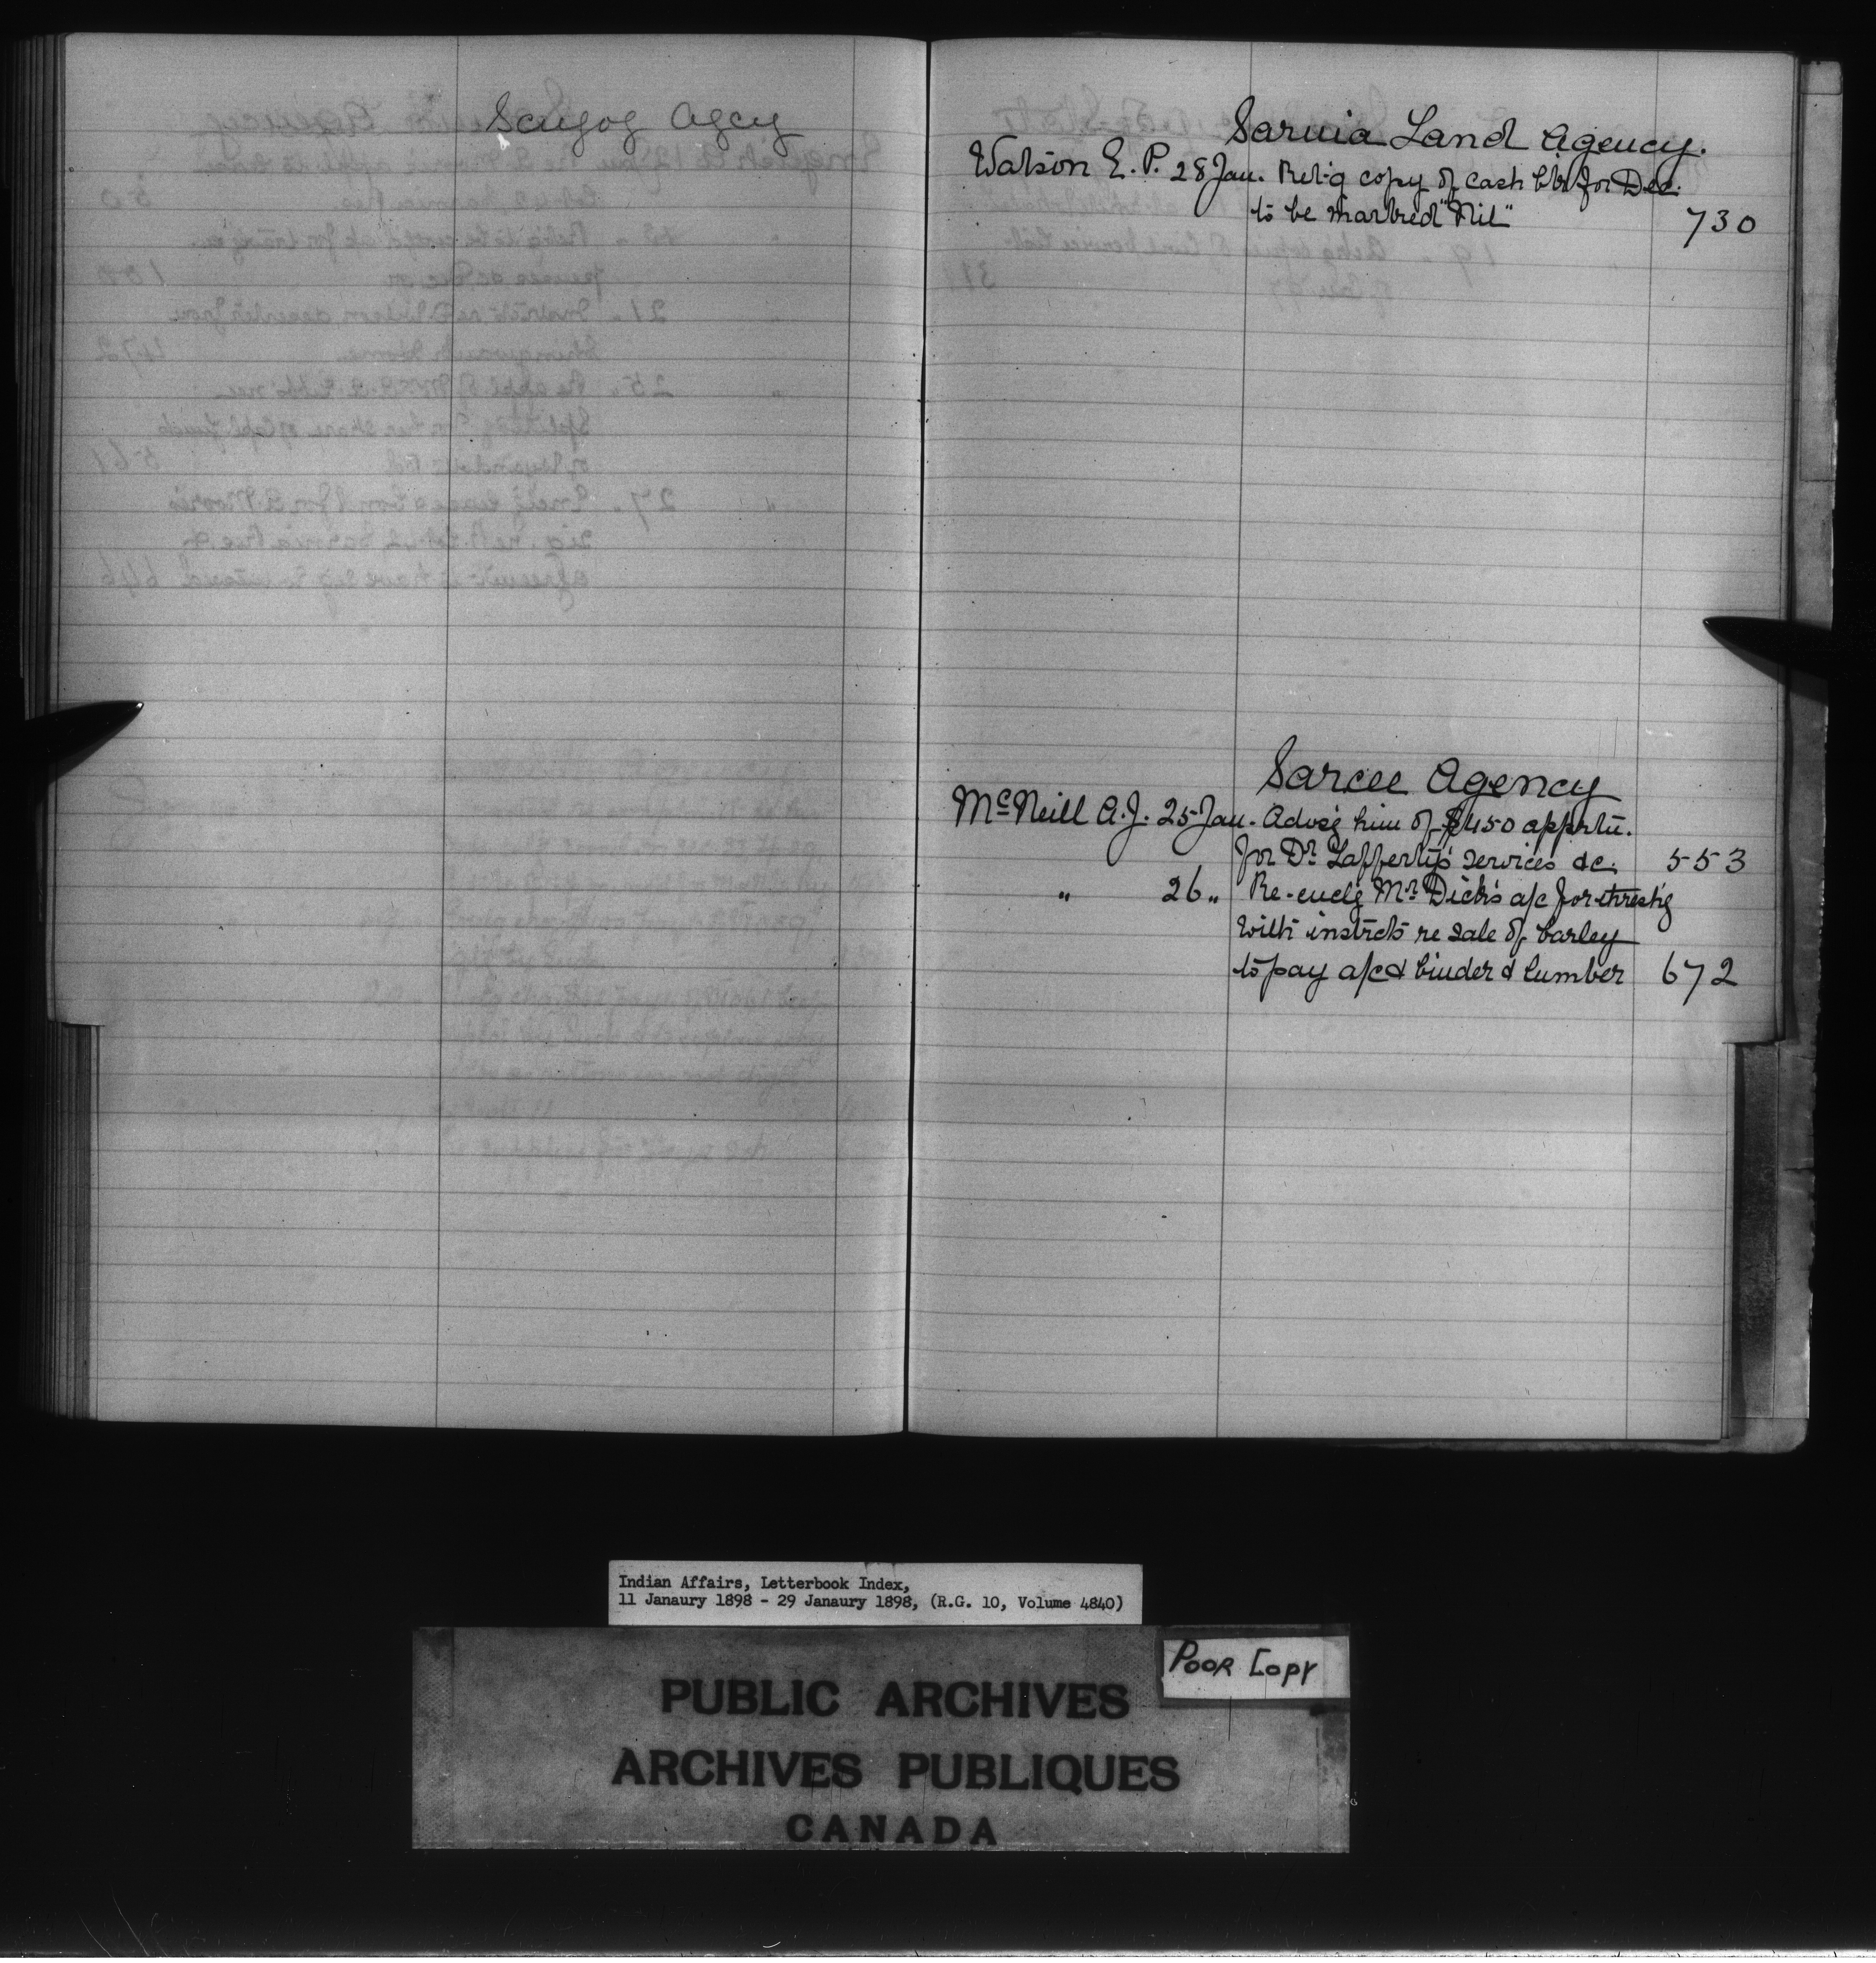 Scugog Agcy
Sarnia Land Agency.
Watson E. P. 28 Jan. Ret'g copy of cash bk for Dec.
to be marked "Nil" 730
Sarcee Agency
McNeill A. J. 25 Jan. Advis'g him of $450 apprtn.
for Dr. Lafferty's services &c. 553
" 26 " Re-encl'g Mr. Dick's a/c for thresh'g
with instrcts re sale of barley
to pay a/c & binder & lumber 672
Indian Affairs, Letterbook Index,
11 Janaury 1898 - 29 Janaury 1898, (R.G. 10, Volume 4840)
POOR COPY
PUBLIC ARCHIVES
ARCHIVES PUBLIQUES
CANADA